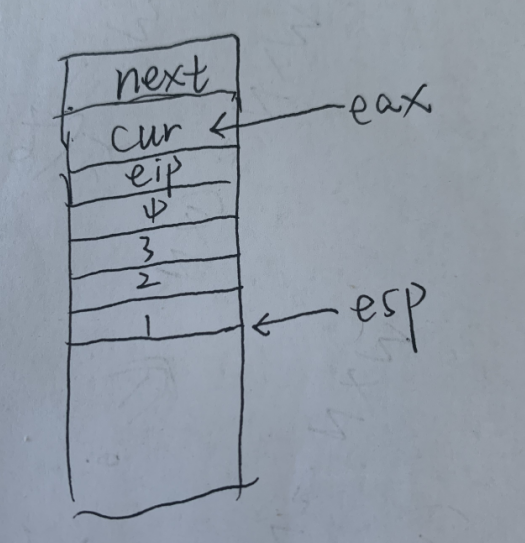 next
cur
eax
eip
4
3
2
1
esp